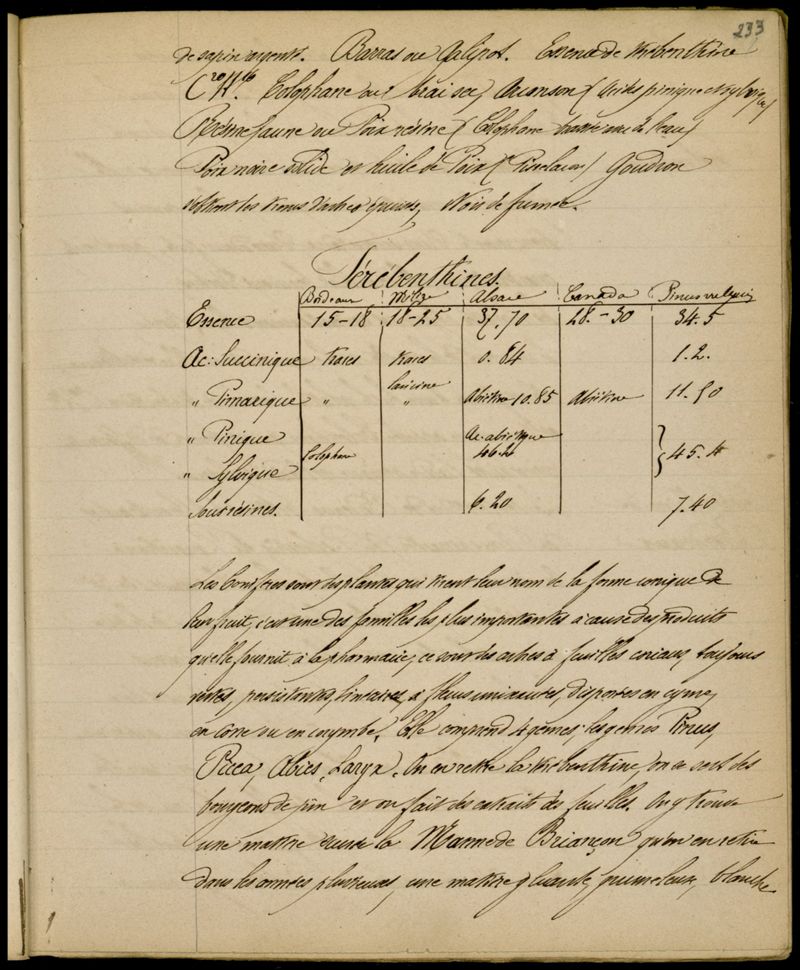 233
de sapin argenté. Barras ou Galipot. Essence de térébenthine
C20H16. Colophane ou brai sec, Arcanson (Acides pinique et sylvique)
Résine jaune ou Poix résine (Colophane dans l'eau)
Poix noire solide et huile de Poix (Pisselaeon) Goudron
les troncs d'arbres épuisés, Noir de fumée.
Térébenthines.
Bordeaux Mélèze Alsace Canada Pinus
Essence 15-18 18-25 37.70 28.-30 34.5
Ac: Succinique traces traces 0.84 1.2.
" Pimarique " " Abiétine 10.85 Abiétine 11.50
" Pinique Ac. abiétique
Colophane 46.2 45.4
" Sylvique
Sousrésines. 6.20 7.40
Les Conifères sont des plantes qui tirent leur nom de la forme conique de
leur fruit, c'est une des familles les plus importantes à cause des produits
qu'elle fournit à la pharmacie, ce sont des arbres à feuilles coriaces, toujours
vertes, persistantes, linéaires, à fleurs unisexuées, disposées en cyme,
en cône ou en corymbe. Elle comprend 4 genres: les genres Pinus,
Picea, Abies, Laryx. On en retire la térébenthine, on se sert des
bourgeons de pin et on fait des extraits des feuilles. On y trouve
une matière sucrée la Manne de Briançon qu'on en retire
dans les années pluvieuses, une matière gluante, grumeleuse, blanche